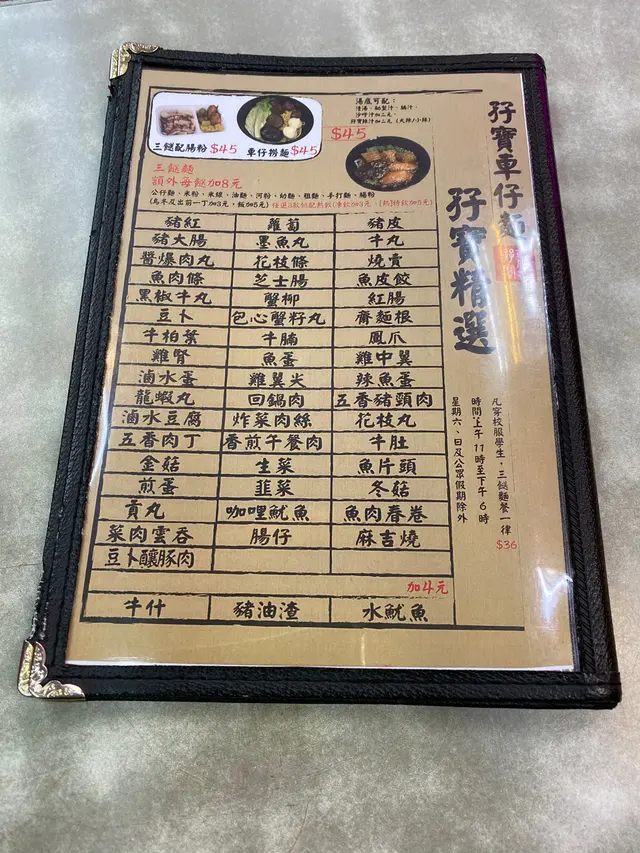 三餸配腸粉 $45
車仔撈麵 $45
湯底可配：
清湯、
沙嗲汁加二元、
$45
三餸麵
額外每餸加8元
公仔麵、米粉、米線、油麵、河粉、幼麵、粗麵、手打麵、腸粉
(烏冬及出前一丁加3元，飯加5元)
豬紅 蘿蔔 豬皮
豬大腸 墨魚丸 牛丸
醬爆肉丸 花枝條 燒賣
魚肉條 芝士腸 魚皮餃
黑椒牛丸 蟹柳 紅腸
豆卜 包心蟹籽丸 齋麵根
牛柏葉 牛腩 鳳爪
雞腎 魚蛋 雞中翼
滷水蛋 雞翼尖 辣魚蛋
龍蝦丸 回鍋肉 五香豬頸肉
滷水豆腐 炸菜肉絲 花枝丸
五香肉丁 香煎午餐肉 牛肚
金菇 生菜 魚片頭
煎蛋 韮菜 冬菇
貢丸 咖哩魷魚 魚肉春卷
菜肉雲吞 腸仔 麻吉燒
豆卜釀豚肉
加4元
牛什 豬油渣 水魷魚
孖寶車仔麵
孖寶精選
凡穿校服學生，三餸麵餐一律
$36
時間：上午 11時至下午 6時
星期六、日及公眾假期除外